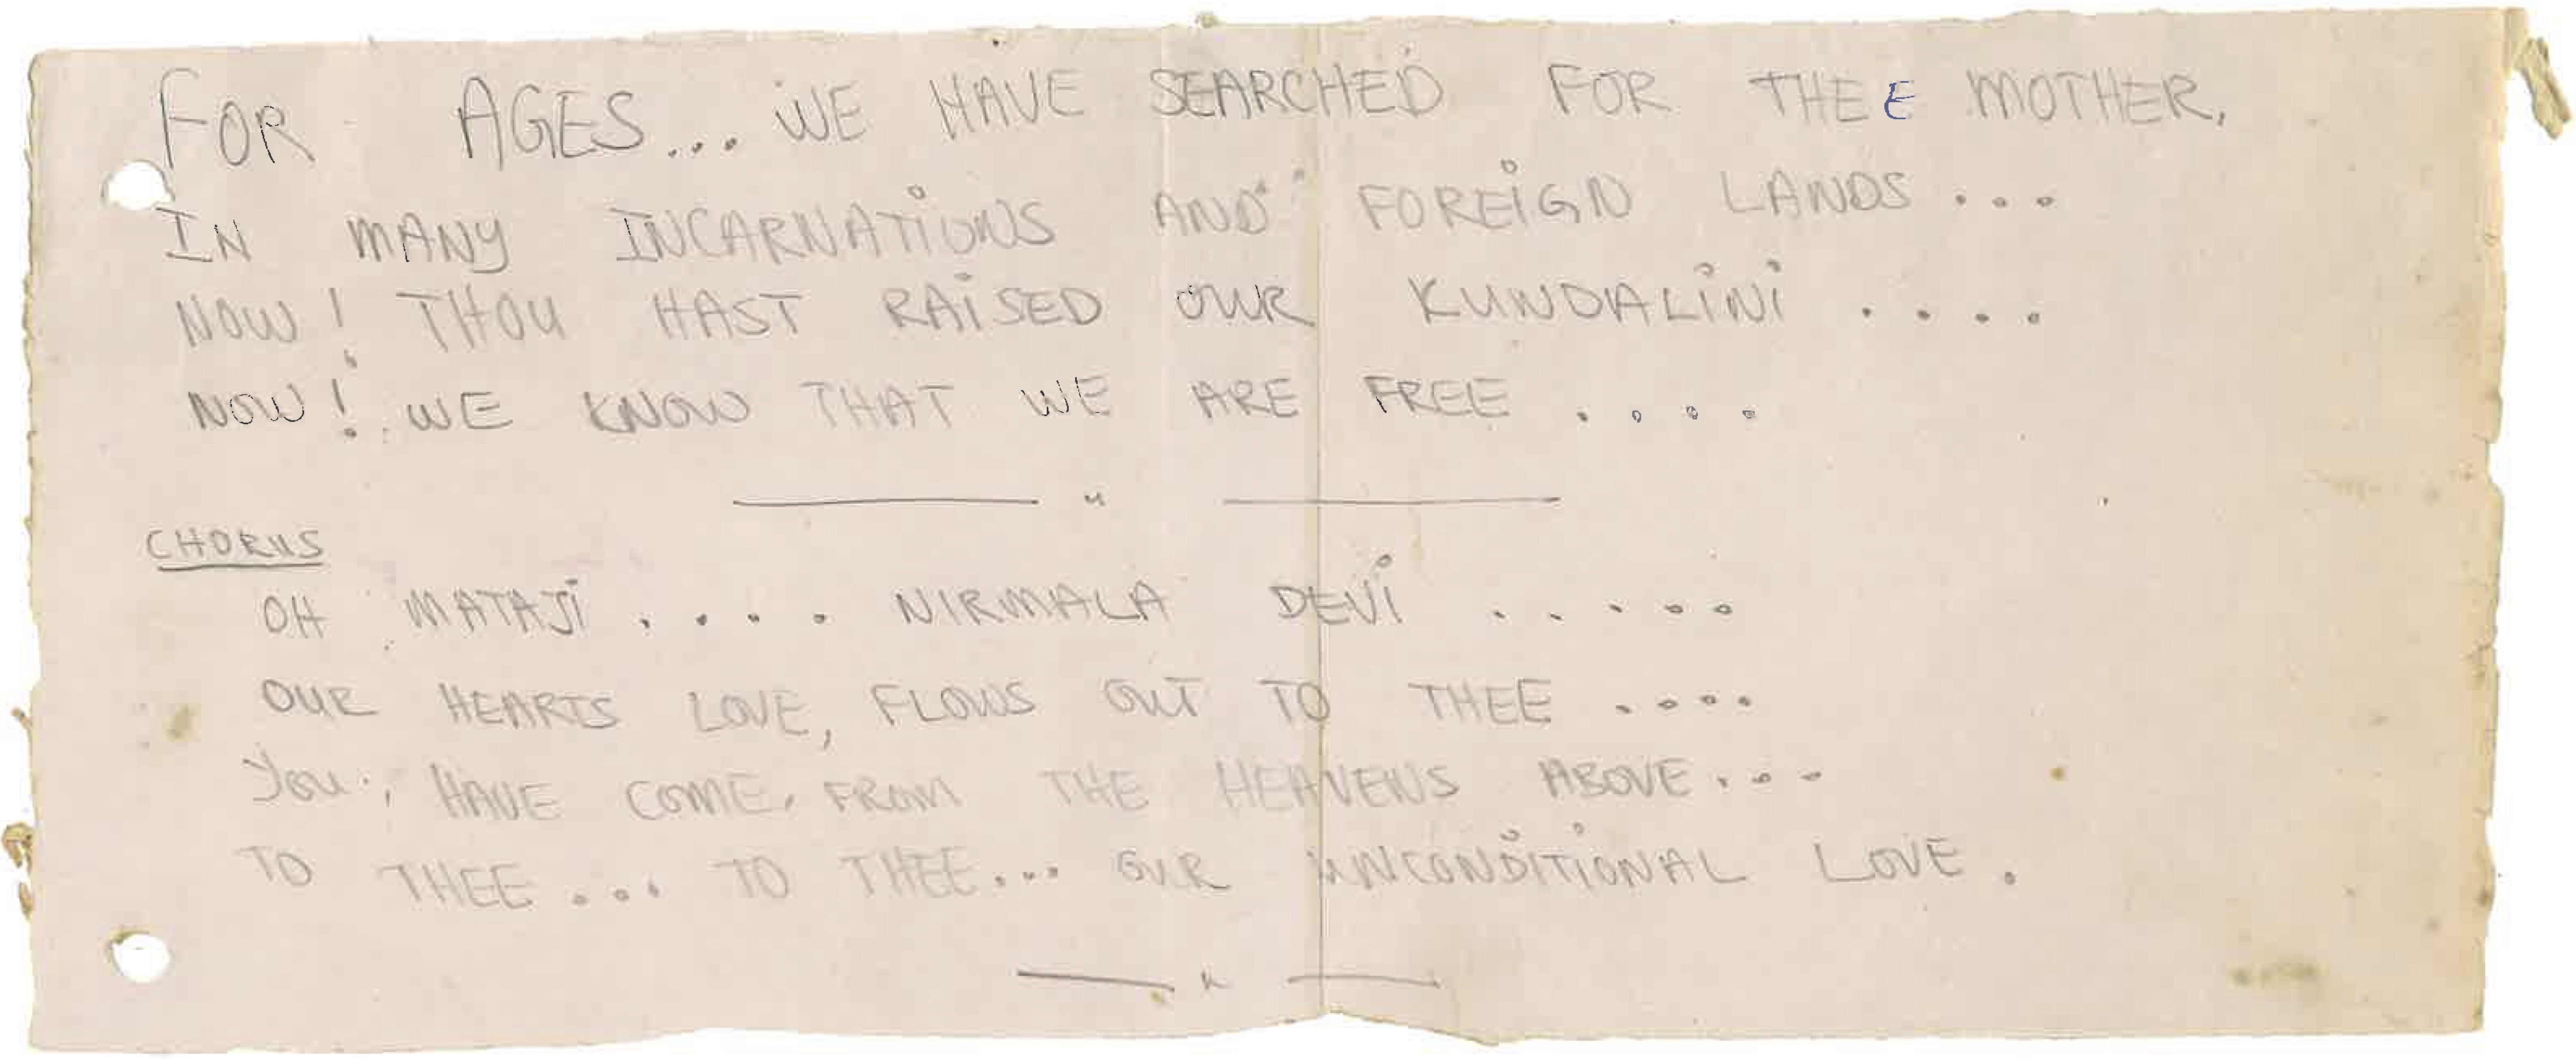 FOR AGES... WE HAVE SEARCHED FOR THEE MOTHER,
IN MANY INCARNATIONS AND FOREIGN LANDS ...
NOW! THOU HAST RAISED OUR KUNDALINI ....
NOW! WE KNOW THAT WE ARE FREE ....
CHORUS
OH MATAJI .... NIRMALA DEVI .....
OUR HEARTS LOVE, FLOWS OUT TO THEE ....
You, HAVE COME, FROM THE HEAVENS ABOVE...
TO THEE ... TO THEE... OUR UNCONDITIONAL LOVE.